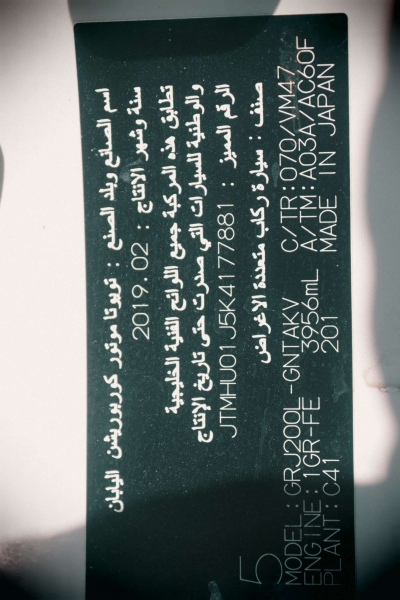 اسم الصانع وبلد الصنع : تويوتا موتور كوربوريشن اليابان
سنة وشهر الإنتاج : 2019.02
تطابق هذه المركبة جميع اللوائح الفنية الخليجية
والوطنية للسيارات التي صدرت حتى تاريخ الإنتاج
الرقم المميز : JTMHU01J5K4177881
صنف : سيارة ركاب متعددة الاغراض
5
MODEL: GRJ200L-GNTAKV C/TR: 070/VM47
ENGINE: 1GR-FE 3956mL A/TM: A03A/AC60F
PLANT: C41 201 MADE IN JAPAN